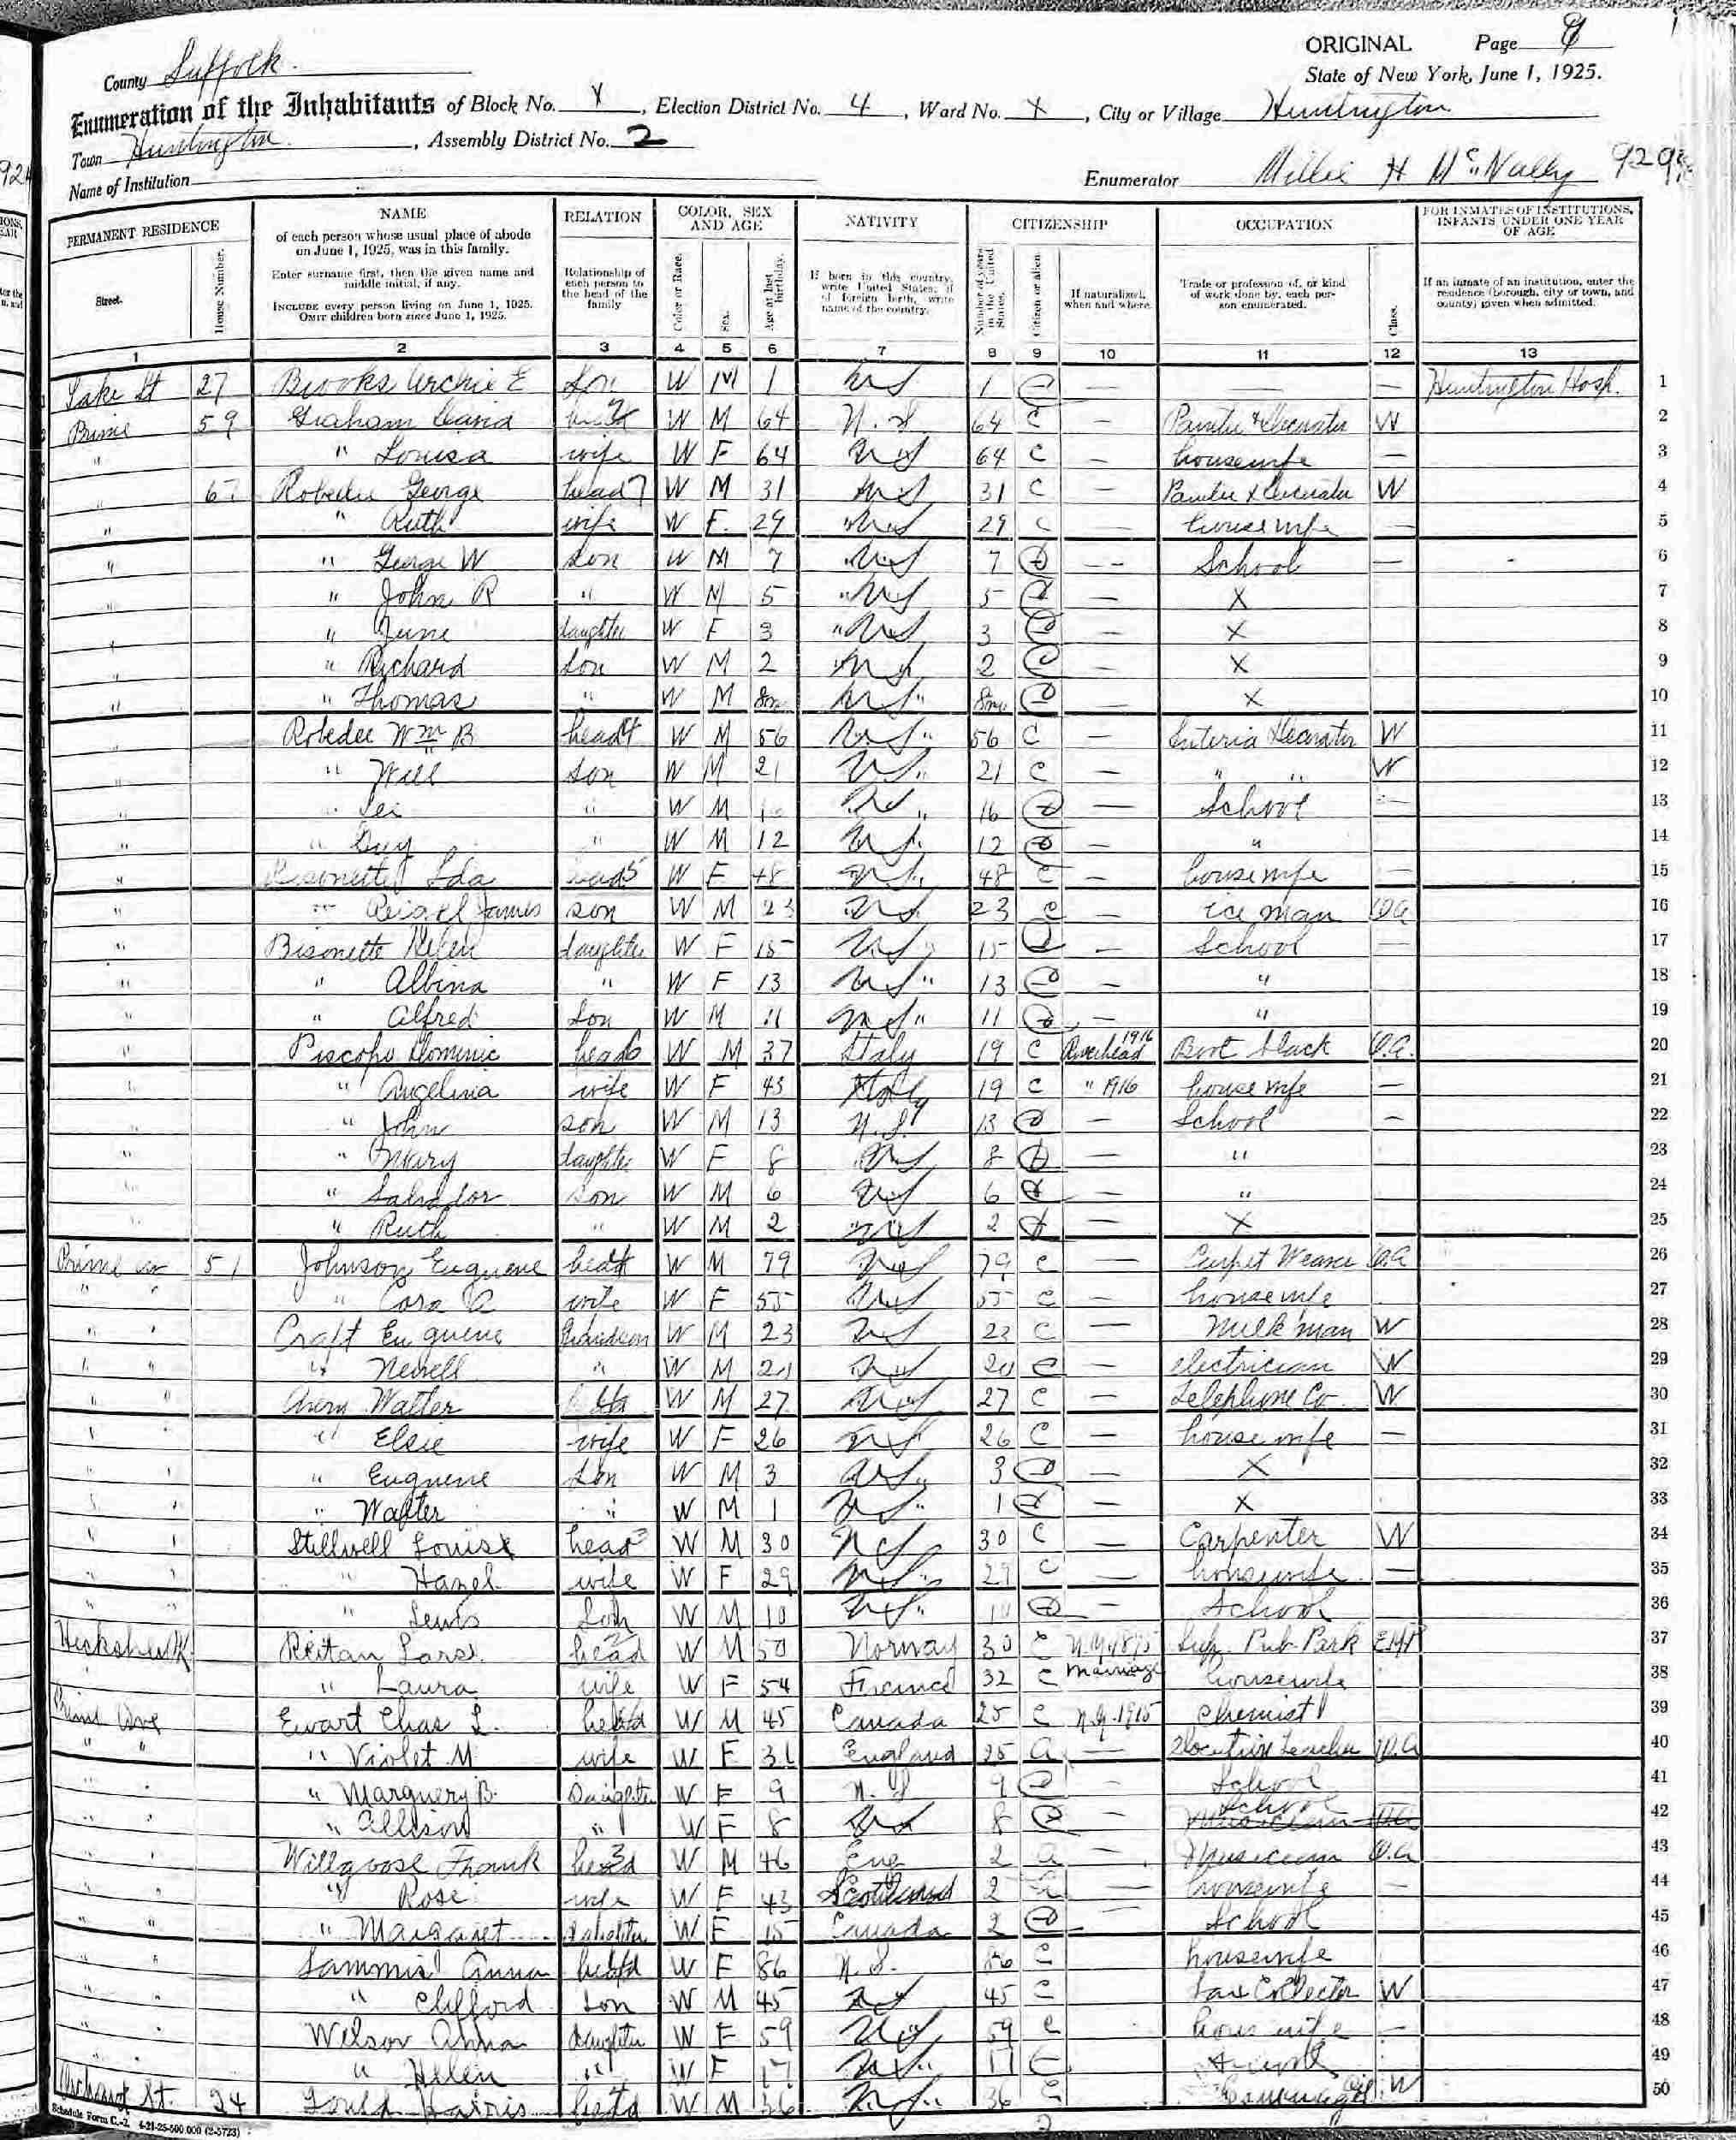 ORIGINAL Page 9
County Suffolk. State of New York, June 1, 1925.
Enumeration of the Inhabitants of Block No. X, Election District No. 4, Ward No. X, City or Village Huntington
Town Huntington, Assembly District No. 2
Name of Institution Enumerator Millie H McNally
PERMANENT RESIDENCE NAME RELATION COLOR, SEX AND AGE NATIVITY CITIZENSHIP OCCUPATION FOR INMATES OF INSTITUTIONS, INFANTS UNDER ONE YEAR OF AGE
Street. House Number.
of each person whose usual place of abode on June 1, 1925, was in this family.
Enter surname first, then the given name and middle initial, if any.
INCLUDE every person living on June 1, 1925.
OMIT children born since June 1, 1925.
Relationship of each person to the head of the family
Color or Race. Sex. Age at last birthday.
If born in this country, write United States; if of foreign birth, write name of the country.
Number of years in the United States. Citizen or alien. If naturalized, when and where.
Trade or profession of, or kind of work done by, each person enumerated. Class.
If an inmate of an institution, enter the residence (borough, city or town, and county) given when admitted.
1 2 3 4 5 6 7 8 9 10 11 12 13
Lake St 27 Brooks Archie E Son W M 1 US 1 C — — — Huntington Hosp. 1
Prime 59 Graham David head W M 64 U.S. 64 C — Painter & Decorator W 2
" " Louisa wife W F 64 US 64 C — housewife — 3
" 67 Robedee George head W M 31 US 31 C — Painter & Decorator W 4
" " Ruth wife W F. 29 US 29 C — housewife — 5
" " George W son W M 7 US 7 C — School — 6
" " John R " W M 5 US 5 C — X 7
" " June daughter W F 3 US 3 C — X 8
" " Richard son W M 2 US 2 C — X 9
" " Thomas " W M 8m US 8m C X 10
Robedee Wm B head W M 56 US 56 C — Interia Decorator W 11
" " Will son W M 21 US 21 C — " " W 12
" " " W M US 16 C — School — 13
" " Guy " W M 12 US 12 C — " 14
" Ida head W F 48 US 48 C — housewife — 15
" James son W M 23 US 23 C — ice man O.A 16
" Bisonette Helen daughter W F 15 US 15 C — School — 17
" " Albina " W F 13 US 13 C — " 18
" " Alfred Son W M 11 US 11 C — " 19
" Piscopo Dominic head W M 37 Italy 19 C Riverhead 1916 Boot black O.A. 20
" " Angelina wife W F 43 Italy 19 C " 1916 housewife — 21
" " John son W M 13 U.S. 13 C — School — 22
" " Mary daughter W F 8 US 8 C — " 23
" " Salvador son W M 6 US 6 C — " 24
" " Ruth " W M 2 US 2 C — X 25
Prime av 51 Johnson Euguene head W M 79 US 79 C — Carpet Weaver O.A 26
" " " Cora A wife W F 55 US 55 C — housewife 27
" " Craft Euguene Grandson W M 23 US 23 C — milk man W 28
" " " Newell " W M 20 US 20 C — electrician W 29
" " Avery Walter W M 27 US 27 C — Telephone Co. W 30
" " " Elsie wife W F 26 US 26 C — housewife — 31
" " " Euguene Son W M 3 US 3 C — X 32
" " " Walter " W M 1 US 1 C — X 33
" " Stillwell Louis head W M 30 US 30 C — Carpenter W 34
" " " Hazel wife W F 29 US 29 C — housewife — 35
" " " Lewis Son W M 10 US 10 C — School 36
Reitan Lars head W M 50 Norway 30 C N.Y. 1895 Sup. Pub. Park 37
" Laura wife W F 54 France 32 C Marriage housewife 38
Prime Ave Ewart Chas L. head W M 45 Canada 25 C N.Y. 1915 Chemist 39
" " " Violet M wife W F England A — Elocution Teacher O.A 40
" " " Marguery B. Daughter W F 9 U.S 9 C — School 41
" " " Allison " W F 8 US 8 C — School 42
" " Willgoose Frank head W M 46 Eng 2 A — Musician O.A 43
" " " Rose wife W F 43 Scotland 2 A — housewife — 44
" " " Margaret daughter W F 15 Canada 2 — School 45
" " Sammis Anna head W F 86 U.S. 86 C housewife 46
" " " Clifford Son W M 45 US 45 C Tax Collector W 47
" Wilson Anna daughter W F 59 US 59 C housewife — 48
" " Helen " W F 17 US 17 C 49
Orchard St. 24 Gould Harris head W M 36 US 36 C W 50
Schedule Form C.-2. 4-21-25-500,000 (2-5723)